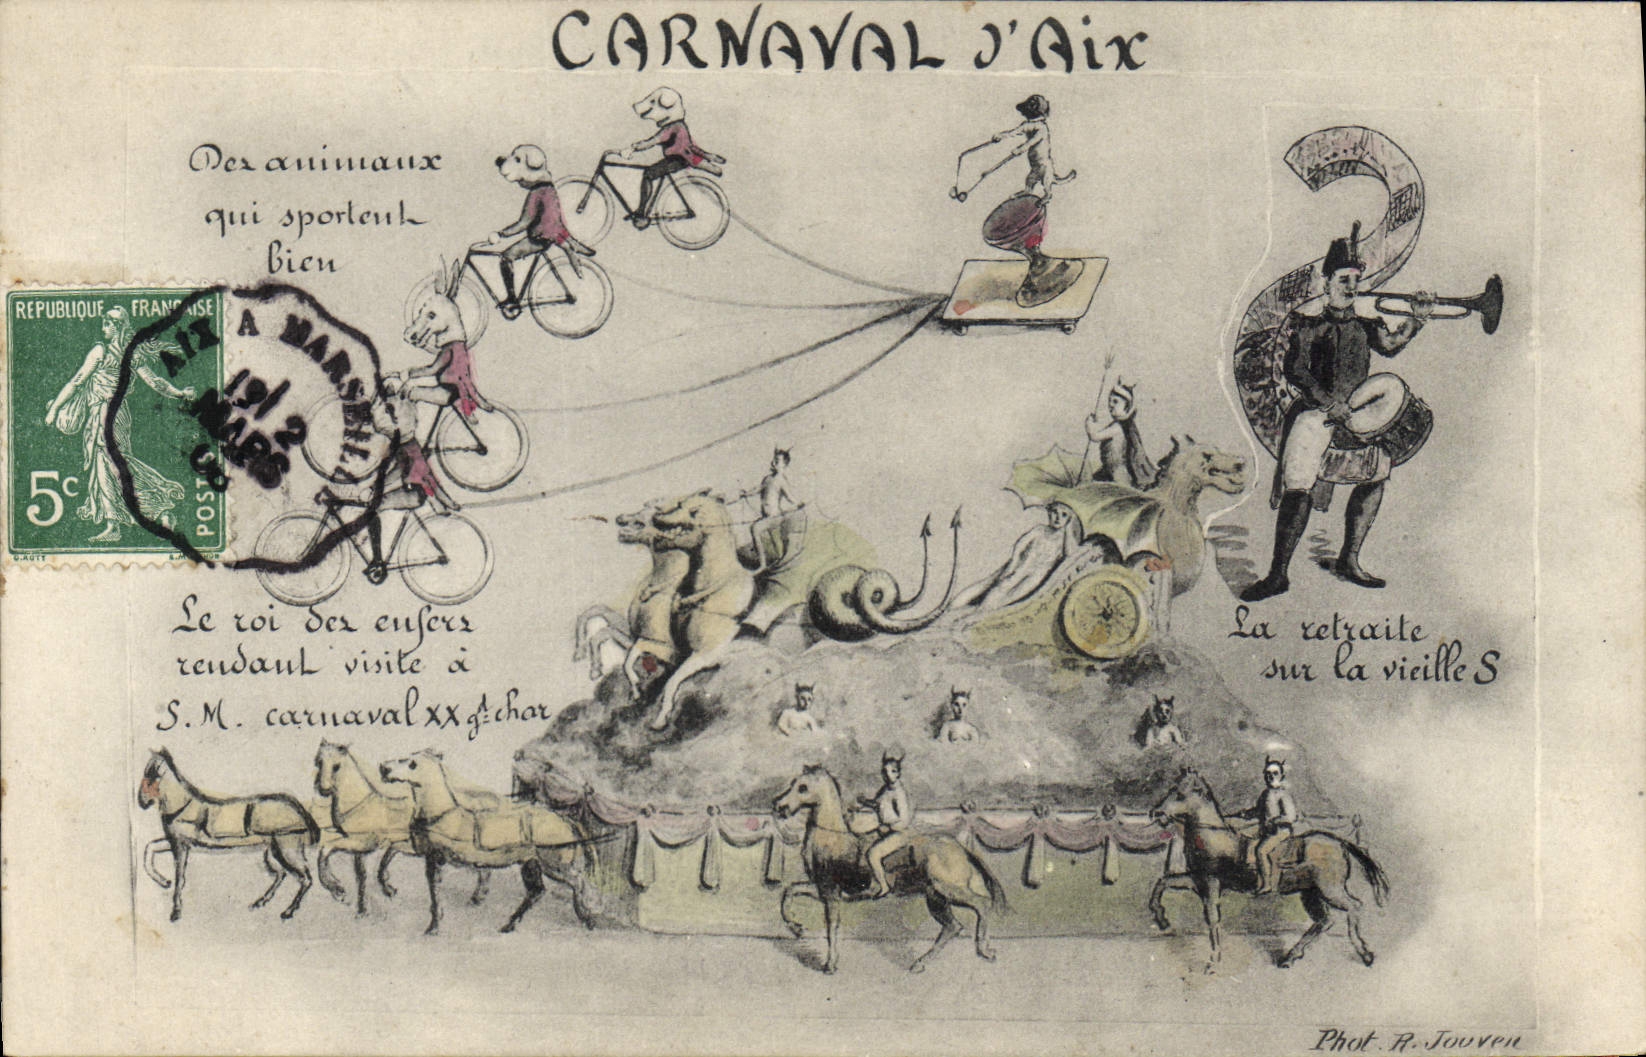 CARNAVAL D'AIX
Des animaux
qui sportent
bien
REPUBLIQUE FRANÇAISE
5c
POSTES
AIX A MARSEILLE
19/2
MARS
08
Le roi des enfers
rendant visite à
S. M. carnaval XX gd char
La retraite
sur la vieille S
Phot. R. Jouven